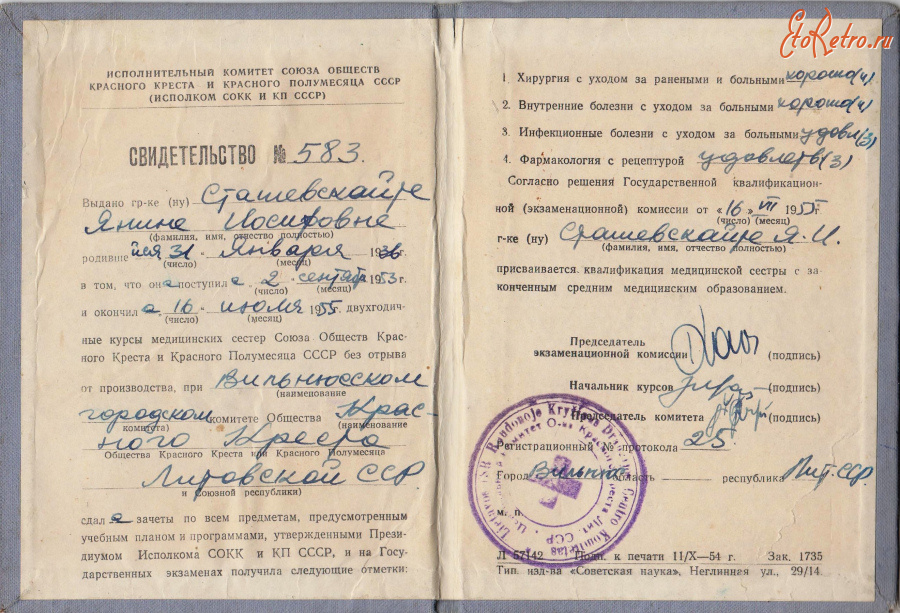 EtoRetro.ru
ИСПОЛНИТЕЛЬНЫЙ КОМИТЕТ СОЮЗА ОБЩЕСТВ
КРАСНОГО КРЕСТА И КРАСНОГО ПОЛУМЕСЯЦА СССР
(ИСПОЛКОМ СОКК И КП СССР)
СВИДЕТЕЛЬСТВО № 583.
Выдано гр-ке (ну) Сташевскайте
Янине Иосифовне
(фамилия, имя, отчество полностью)
родившейся 31 Января 1936
(число) (месяц)
в том, что она поступила 2 сентября 1953 г.
(число) (месяц)
и окончила 16 июля 1955 г. двухгодич-
(число) (месяц)
ные курсы медицинских сестер Союза Обществ Крас-
ного Креста и Красного Полумесяца СССР без отрыва
от производства, при Вильнюсском
(наименование
городском комитете Общества Крас-
комитета) (наименование
ного Креста
Общества Красного Креста или Красного Полумесяца
Литовской ССР
и Союзной республики)
сдала зачеты по всем предметам, предусмотренным
учебным планом и программами, утвержденными Прези-
диумом Исполкома СОКК и КП СССР, и на Госу-
дарственных экзаменах получила следующие отметки:
1. Хирургия с уходом за ранеными и больными хорошо(4)
2. Внутренние болезни с уходом за больными хорошо(4)
3. Инфекционные болезни с уходом за больными удовл(3)
4. Фармакология с рецептурой удовлетв(3)
Согласно решения Государственной квалификацион-
ной (экзаменационной) комиссии от «16» VII 1955 г.
(число) (месяц)
г-ке (ну) Сташевскайте Я. И.
(фамилия, имя, отчество полностью)
присваивается квалификация медицинской сестры с за-
конченным средним медицинским образованием.
Председатель
экзаменационной комиссии (подпись)
Начальник курсов (подпись)
Председатель комитета (подпись)
Регистрационный № протокола 25
Город Вильнюс область республика Лит. ССР.
м. п.
Л 57142 Подп. к печати 11/X—54 г. Зак. 1735
Тип. изд-ва «Советская наука», Неглинная ул., 29/14.